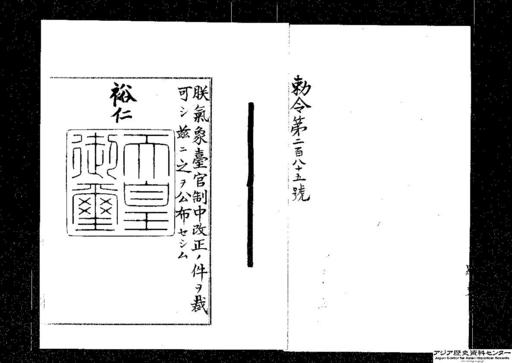 勅令第二百八十五號
朕氣象臺官制中改正ノ件ヲ裁
可シ茲ニ之ヲ公布セシム
裕仁
天皇
御璽
アジア歴史資料センター
Japan Center for Asian Historical Records